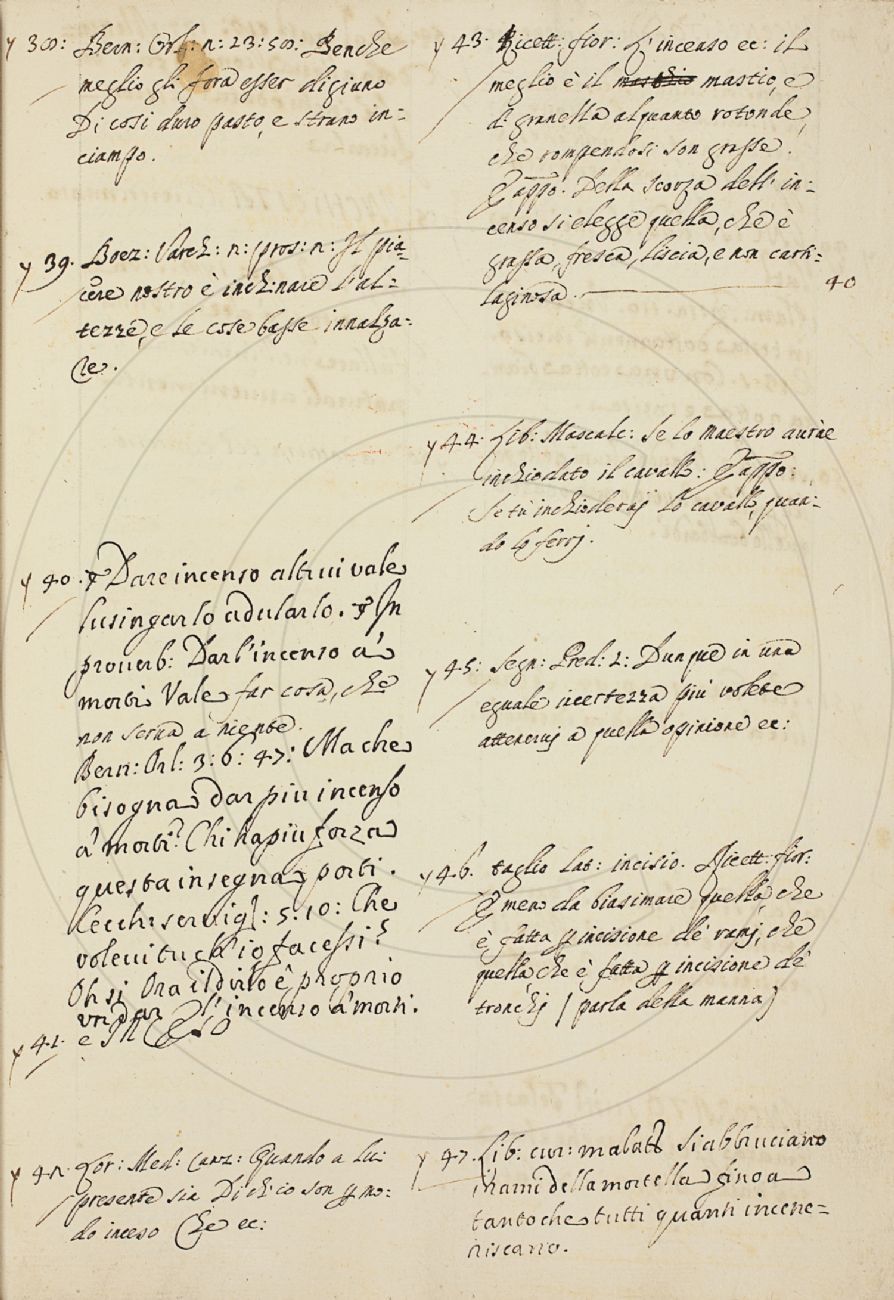 y 38: Bern: Orl: n: 23: 58: Benche
meglio gli fora esser digiuno
Di cosi duro pasto, e strano in=
ciampo.
y 39. Boez: Varch: n: pros: n: Il pia=
cere nostro è inchinare l'al=
tezze, e le cose basse innalza=
re.
y 40. Dare incenso altrui vale
lusingarlo adularlo. In
proverb: Dar l'incenso à
morti Vale far cosa, che
non serva a niente.
Bern: Orl: 3: 6: 47: Ma che
bisogna dar piu incenso
à morti? Chi ha più forza
questa insegna porti.
Cecch: servig: 5: 10: Che
volevi tu ch'io facessi?
Oh si Ora il dirlo è proprio
un dar l'incenso a' morti.
y 41. e INCESO
y 42. Lor: Med: canz: Quando a lui
presente sia Dichico son p mo=
do inceso Che ec:
y 43. Ricett: fior: L'incenso ec: il
meglio è il mastio, e
di granella alquanto rotonde,
che rompendosi son grasse.
E appo. Della scorza dell' in=
censo si elegge quella, che è
grassa, fresca, liscia, e non carti=
laginosa. 40
y 44. Lib: Mascalc: Se lo maestro avràe
inchiodato il cavallo: E appo:
Se tu inchioderaj lo cavallo, quan=
do lo ferrj.
y 45: Segn: Pred: 2: Dunque in una
eguale incertezza più volete
attenervj a quella opinione ec:
y 46. taglio Lat: incisio. Ricett: fior:
E meno da biasimare quella, che
è fatta p incisione de' ramj, che
quella che è fatta p incisione de'
tronchj (parla della manna)
y 47. Lib: cur: malatt: Si abbruciano
i rami della mortella fino a
tanto che tutti quanti incene=
riscano.